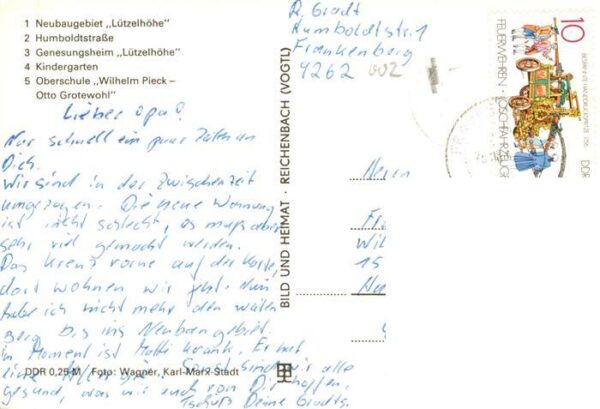 1 Neubaugebiet „Lützelhöhe"
2 Humboldtstraße
3 Genesungsheim „Lützelhöhe"
4 Kindergarten
5 Oberschule „Wilhelm Pieck –
Otto Grotewohl"
Lieber Opa!
Nur schnell ein paar Zeilen an
Dich.
Wir sind in der Zwischenzeit
umgezogen. Die neue Wohnung
ist nicht schlecht, es muß aber
sehr viel gemacht werden.
Das Kreuz vorne auf der Karte,
dort wohnen wir jetzt. Nun
habe ich nicht mehr den weiten
Berg bis ins Neubaugebiet.
Im Moment ist Matti krank. Er hat
eine Sonst sind wir alle
gesund, was wir auch von Dir hoffen.
Tschüß Deine Gradts.
DDR 0,25 M Foto: Wagner, Karl-Marx-Stadt
BILD UND HEIMAT · REICHENBACH (VOGTL)
R. Gradt
Humboldtstr. 1
Frankenberg
9262
10
FEUERWEHREN · LÖSCHFAHRZEUGE
DDR
Herrn
Wil
15